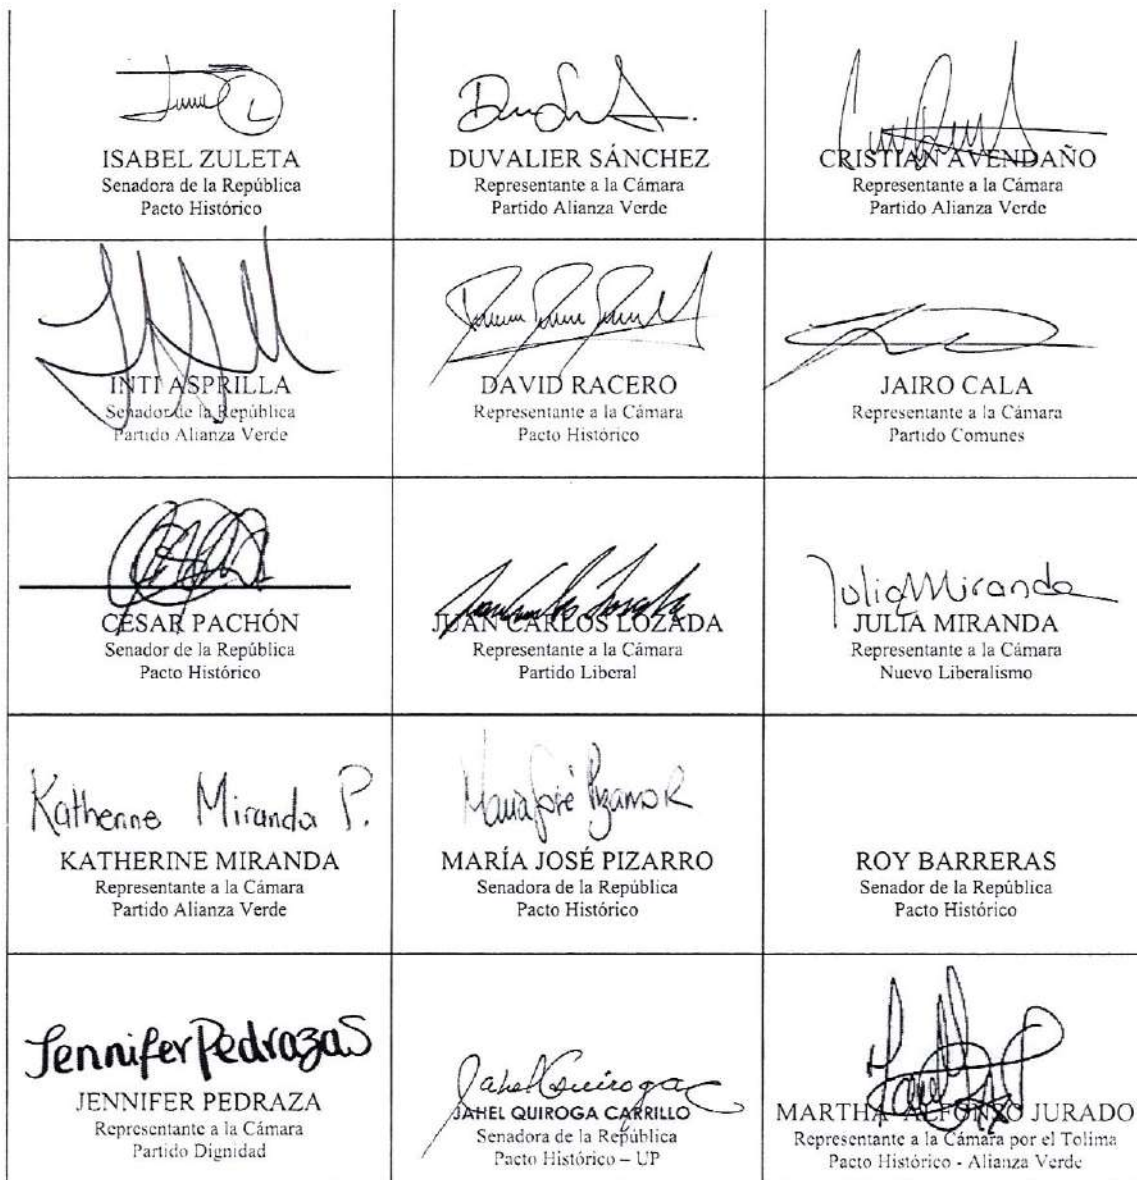 ISABEL ZULETA
Senadora de la República
Pacto Histórico
DUVALIER SÁNCHEZ
Representante a la Cámara
Partido Alianza Verde
CRISTIAN AVENDAÑO
Representante a la Cámara
Partido Alianza Verde
INTI ASPRILLA
Senador de la República
Partido Alianza Verde
DAVID RACERO
Representante a la Cámara
Pacto Histórico
JAIRO CALA
Representante a la Cámara
Partido Comunes
CESAR PACHÓN
Senador de la República
Pacto Histórico
JUAN CARLOS LOZADA
Representante a la Cámara
Partido Liberal
Julia Miranda
JULIA MIRANDA
Representante a la Cámara
Nuevo Liberalismo
Katherine Miranda P.
KATHERINE MIRANDA
Representante a la Cámara
Partido Alianza Verde
María José Pizarro R
MARÍA JOSÉ PIZARRO
Senadora de la República
Pacto Histórico
ROY BARRERAS
Senador de la República
Pacto Histórico
Jennifer Pedraza S
JENNIFER PEDRAZA
Representante a la Cámara
Partido Dignidad
Jahel Quiroga C
JAHEL QUIROGA CARRILLO
Senadora de la República
Pacto Histórico – UP
MARTHA ALFONZO JURADO
Representante a la Cámara por el Tolima
Pacto Histórico - Alianza Verde